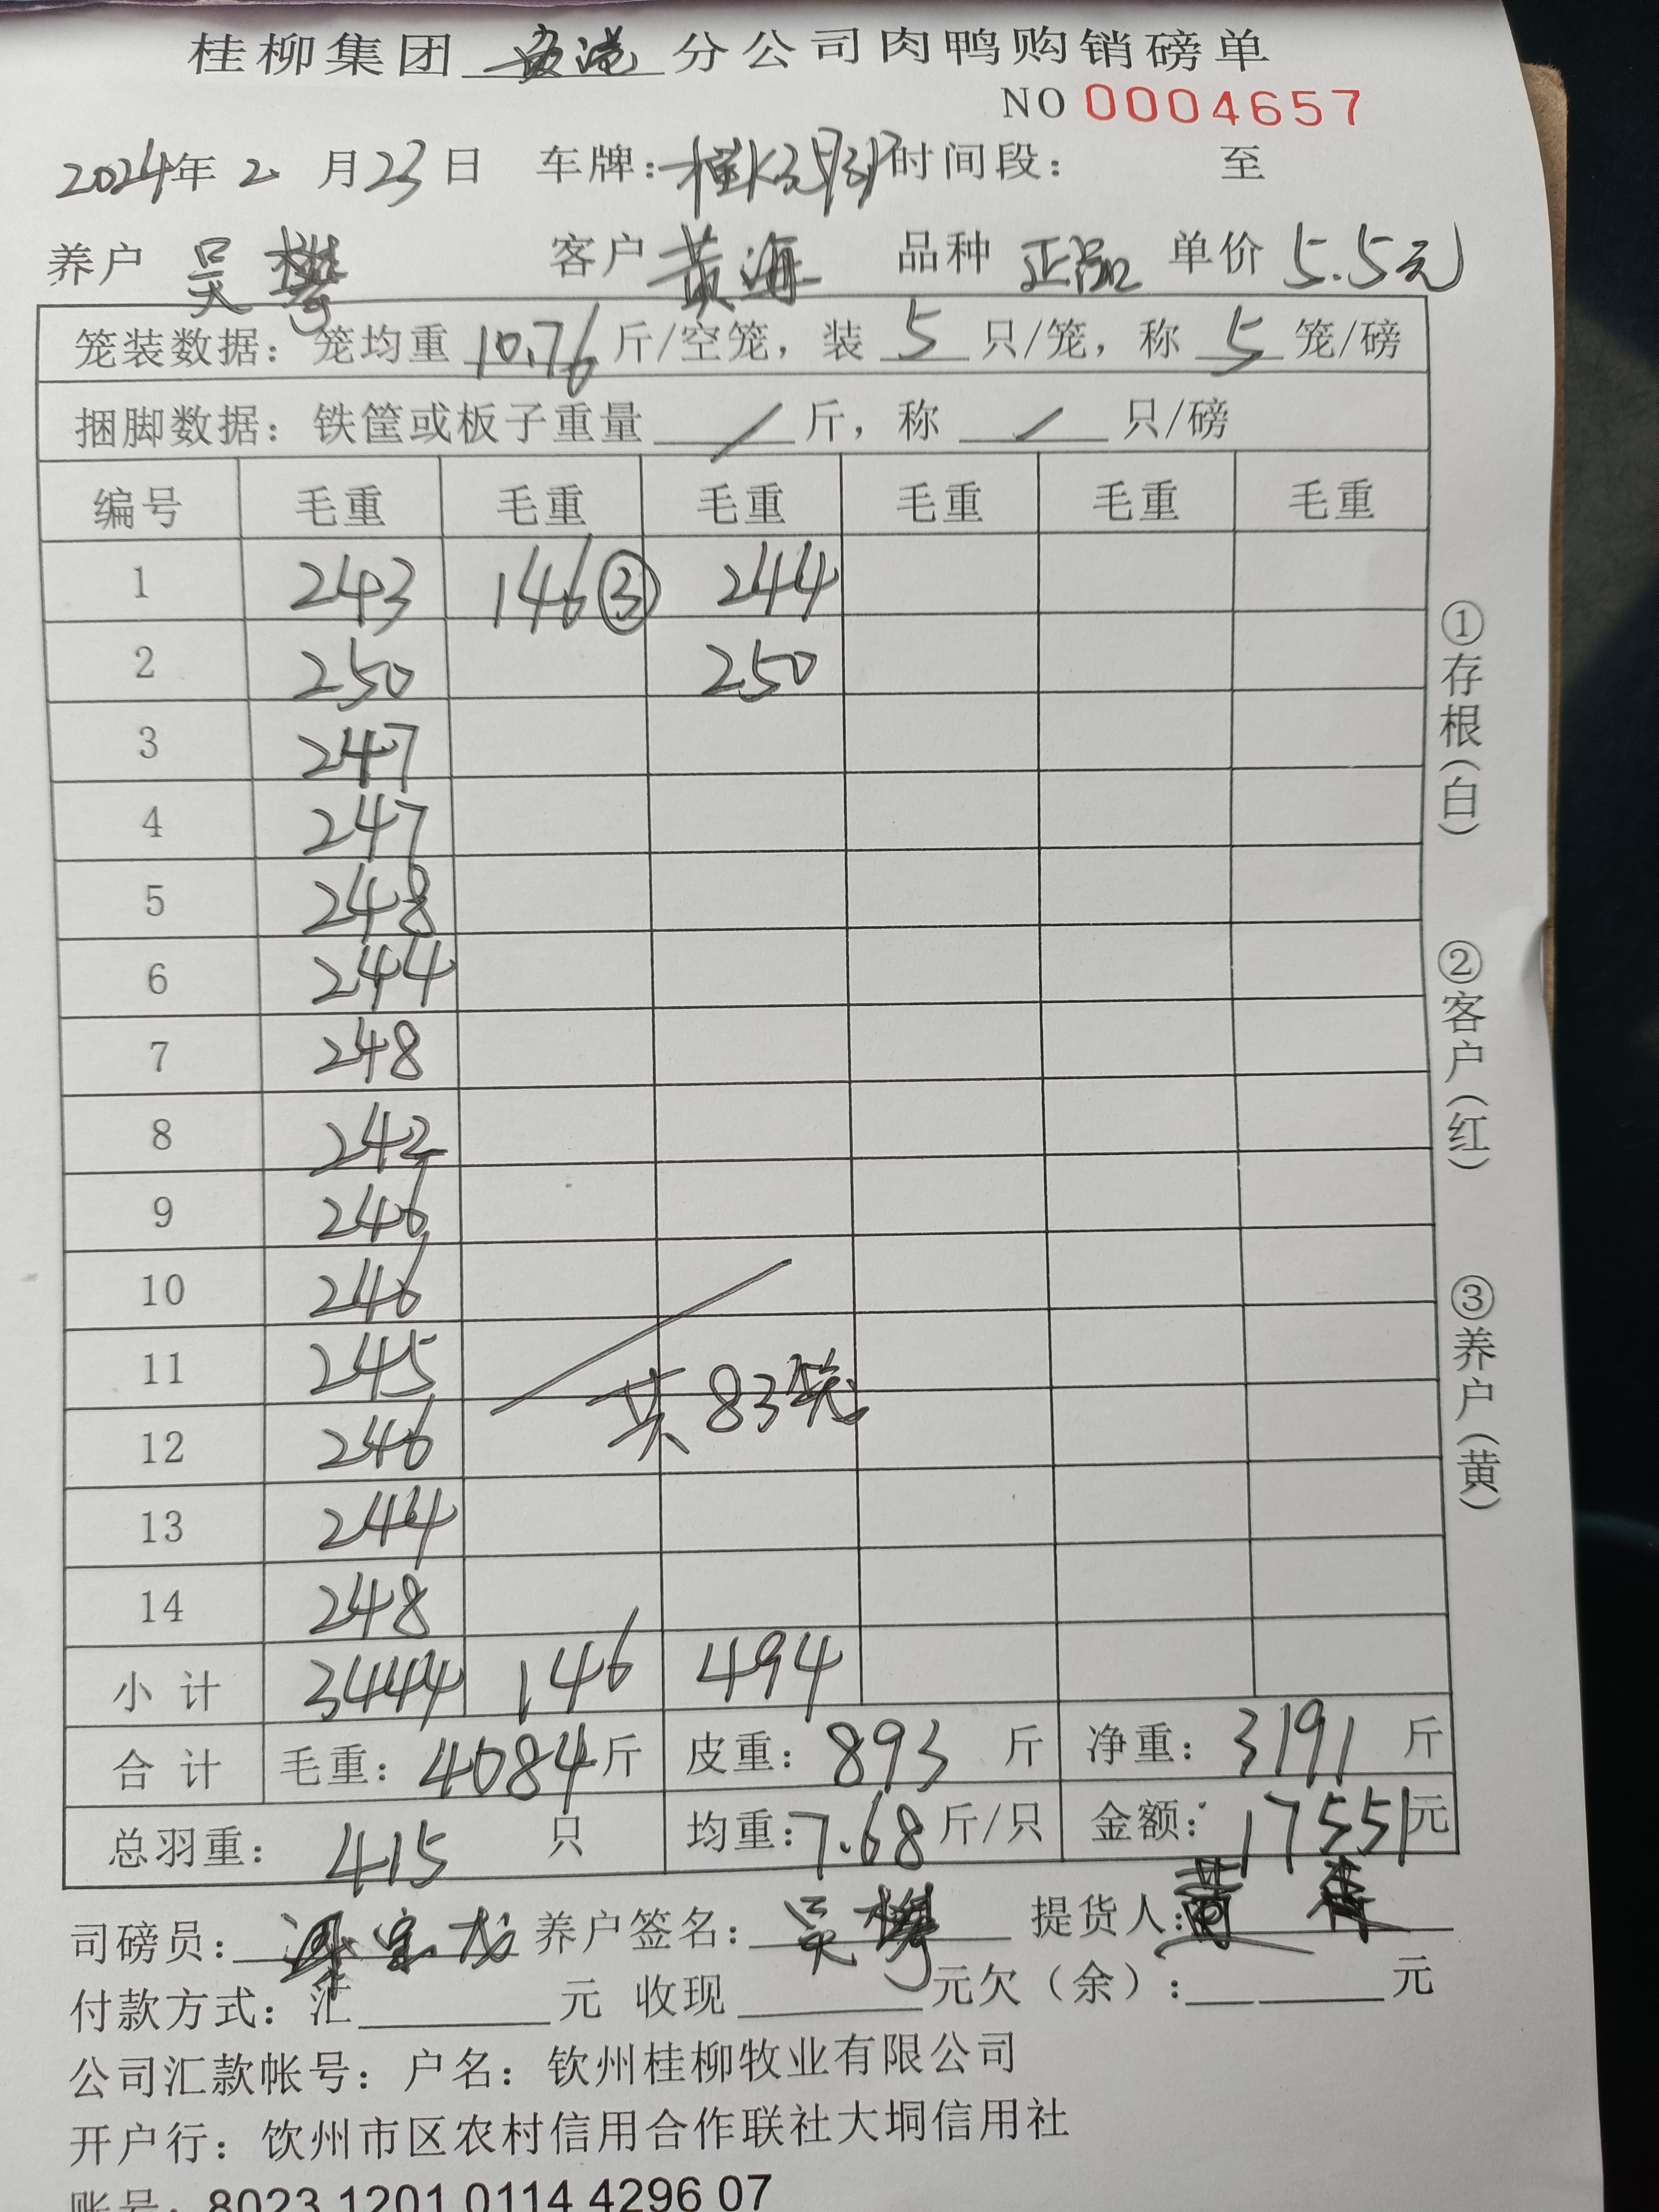 桂柳集团 安港 分公司肉鸭购销磅单
NO 0004657
2024年 2 月 23 日 车牌: 时间段: 至
养户 吴攀 客户 黄海 品种 正品 单价 5.5元
笼装数据: 笼均重 10.76 斤/空笼, 装 5 只/笼, 称 5 笼/磅
捆脚数据: 铁筐或板子重量 / 斤, 称 / 只/磅
编号 毛重 毛重 毛重 毛重 毛重 毛重
1 243 146③ 244
2 250 250
3 247
4 247
5 248
6 244
7 248
8 242
9 246
10 246
11 245
12 246
13 244
14 248
共83笼
小计 3444 146 494
合计 毛重: 4084斤 皮重: 893 斤 净重: 3191 斤
总羽重: 415 只 均重: 7.68 斤/只 金额: 17551元
司磅员: 养户签名: 吴攀 提货人: 黄海
付款方式: 汇 元 收现 元欠(余): 元
公司汇款帐号: 户名: 钦州桂柳牧业有限公司
开户行: 饮州市区农村信用合作联社大垌信用社
账号: 8023 1201 0114 4296 07
①存根(白)
②客户(红)
③养户(黄)